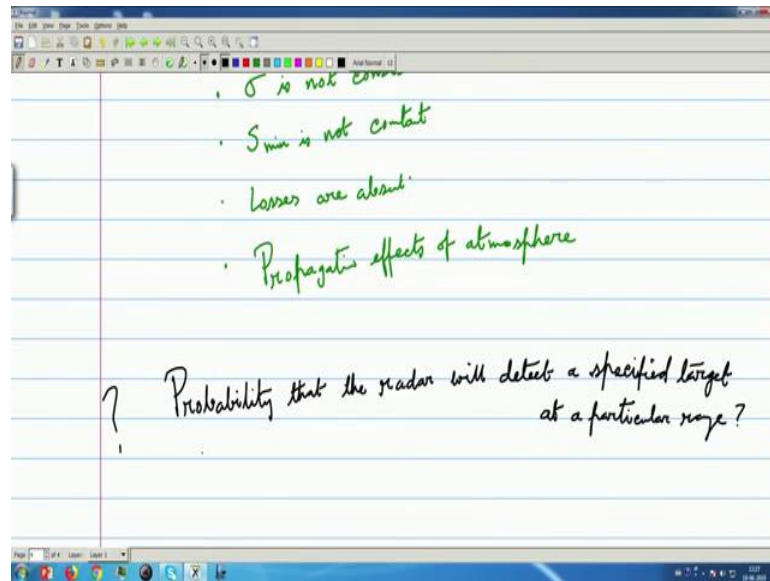 File Edit View Page Tools Options Help
Arial Normal 12
. σ is not
. Smin is not contat
. Losses are absent.
. Propagatio effects of atmosphere
? Probability that the radar will detect a specified target
at a particular range?
Page 4 of 4 Layer: Layer 1